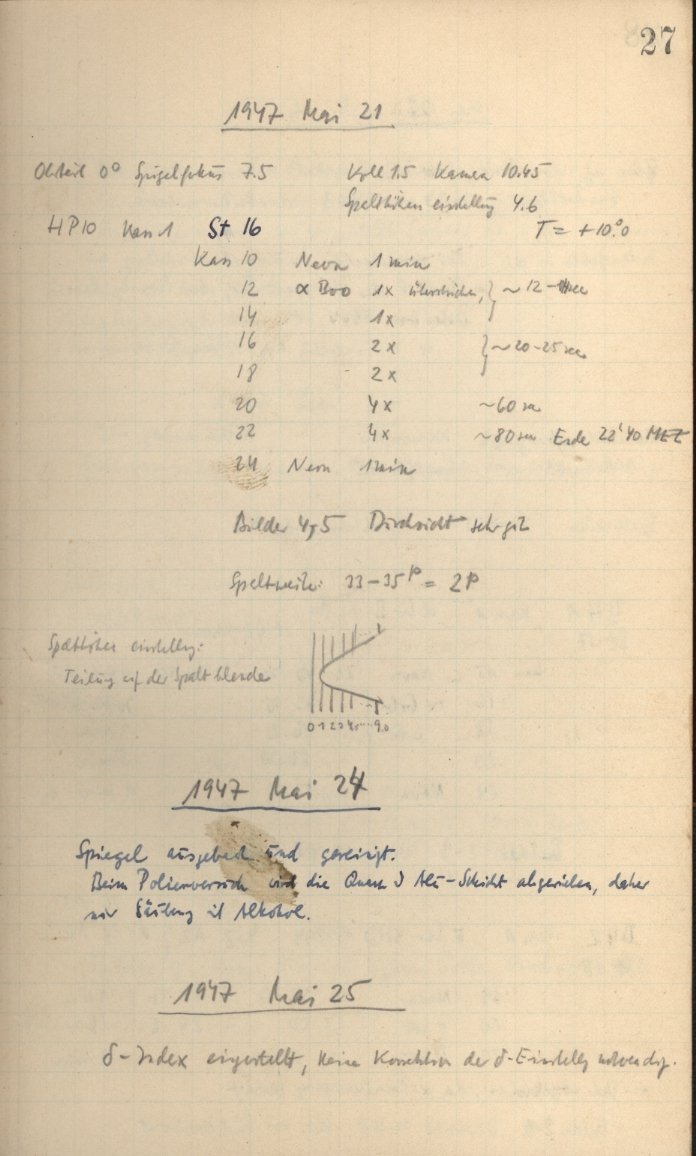 27
1947 Mai 21
0° Spiegelfokus 7.5 Koll 1.5 Kamera 10.45
Spalthöhen einstellung 4.6
HP10 Kass 1 St 16 T = +10°.0
Kass 10 Neon 1 min
12 α Boo 1x überstrichen, } ~ 12 - sec
14 1x
16 2x } ~ 20-25 sec
18 2x
20 4x ~60 sec
22 4x ~80 sec Ende 22h40 MEZ
24 Neon 1 min
Bilder 4, 5 Durchsicht sehr gut
Spaltweite: 33-35p = 2p
Spalthöhen einstellg:
Teilung auf der Spaltblende
0 1 2 3 4 5 ... 9.0
1947 Mai 24
Spiegel ausgebaut und gereinigt.
Beim Polierversuch wird die Quarz Alu-Schicht abgerieben, daher
nur Säubung mit Alkohol.
1947 Mai 25
δ-Index eingestellt, keine Korrektion der δ-Einstellg notwendig.